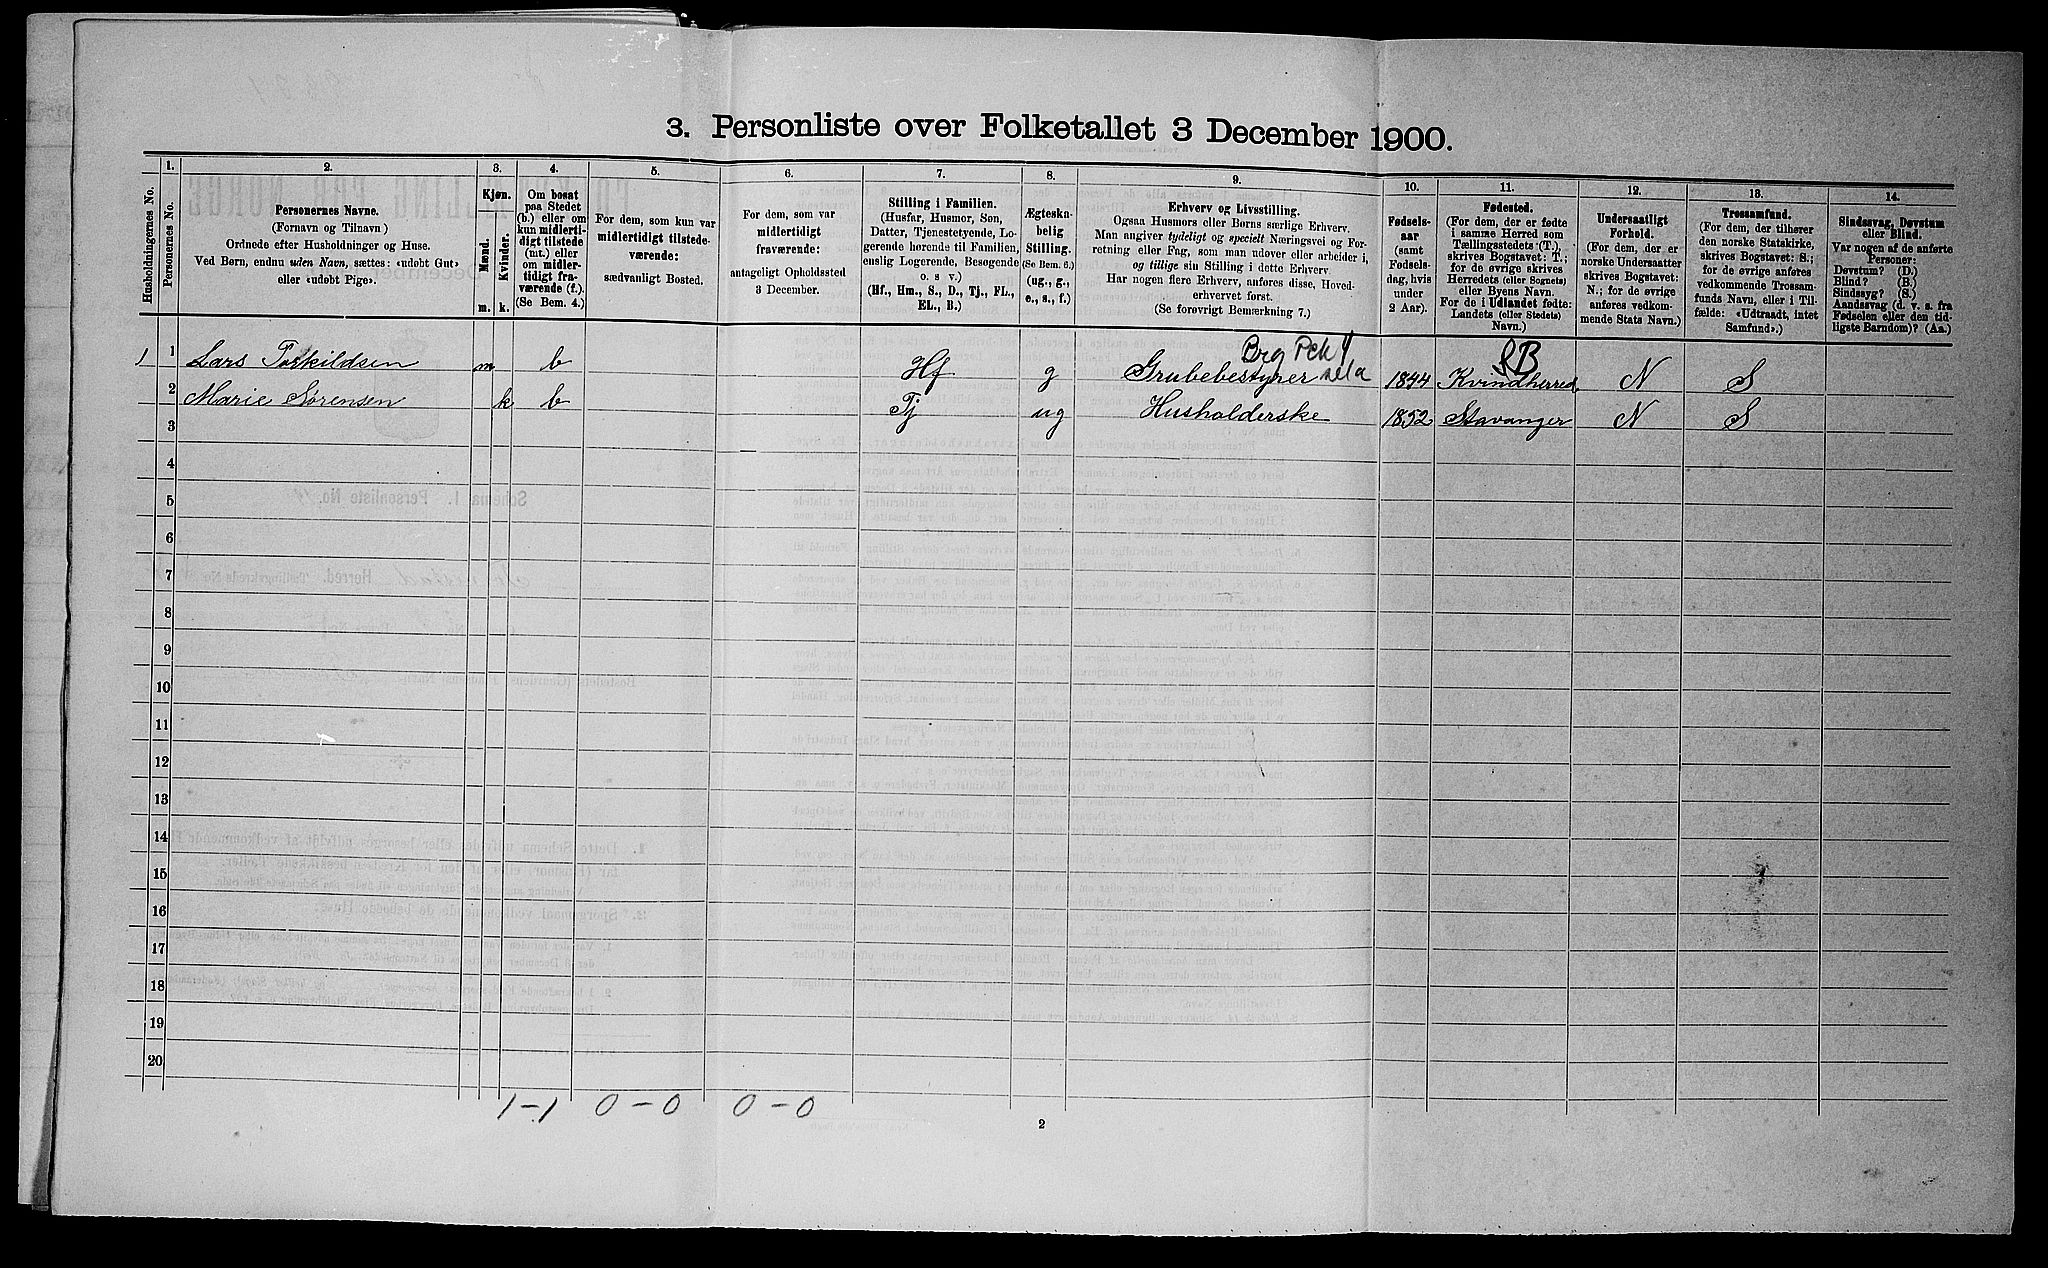 3. Personliste over Folketallet 3 December 1900.
Husholdningernes No.
1.
Personernes No.
2.
Personernes Navne.
(Fornavn og Tilnavn)
Ordnede efter Husholdninger og Huse.
Ved Børn, endnu uden Navn, sættes: «udøbt Gut»
eller «udøbt Pige».
3.
Kjøn.
Mænd.
Kvinder.
m.
k.
4.
Om bosat
paa Stedet
(b.) eller om
kun midlerti-
digt tilstede
(mt.) eller
om midler-
tidigt fra-
værende (f.).
(Se Bem. 4.)
5.
For dem, som kun var
midlertidigt tilstede-
værende:
sædvanligt Bosted.
6.
For dem, som var
midlertidigt
fraværende:
antageligt Opholdssted
3 December.
7.
Stilling i Familien.
(Husfar, Husmor, Søn,
Datter, Tjenestetyende, Lo-
gerende hørende til Familien,
enslig Logerende, Besøgende
o. s. v.)
(Hf., Hm., S., D., Tj., FL.,
EL., B.)
8.
Ægteska-
belig
Stilling.
(Se Bem. 6.)
(ug., g.,
e., s., f.)
9.
Erhverv og Livsstilling.
Ogsaa Husmors eller Børns særlige Erhverv.
Man angiver tydeligt og specielt Næringsvei og For-
retning eller Fag, som man udøver eller arbeider i,
og tillige sin Stilling i dette Erhverv.
Har nogen flere Erhverv, anføres disse, Hoved-
erhvervet først.
(Se forøvrigt Bemærkning 7.)
10.
Fødsels-
aar
(samt
Fødsels-
dag, hvis
under
2 Aar).
11.
Fødested.
(For dem, der er fødte
i samme Herred som
Tællingsstedets (T.),
skrives Bogstavet: T.;
for de øvrige skrives
Herredets (eller Sognets)
eller Byens Navn.
For de i Udlandet fødte:
Landets (eller Stedets)
Navn.)
12.
Undersaatligt
Forhold.
(For dem, der er
norske Undersaatter
skrives Bogstavet:
N.; for de øvrige
anføres vedkom-
mende Stats Navn.)
13.
Trossamfund.
(For dem, der tilhører
den norske Statskirke,
skrives Bogstavet: S.;
for de øvrige anføres
vedkommende Trossam-
funds Navn, eller i Til-
fælde: «Udtraadt, intet
Samfund».)
14.
Sindssvag, Døvstum
eller Blind.
Var nogen af de anførte
Personer:
Døvstum? (D.)
Blind? (B.)
Sindssyg? (S.)
Aandssvag (d. v. s. fra
Fødselen eller den tid-
ligste Barndom)? (Aa.)
1 1 Lars Torkildsen m b Hf g Grubebestyrer 1844 Kvindherred N S
2 Marie Sørensen k b Tj ug Husholderske 1852 Stavanger N S
3
4
5
6
7
8
9
10
11
12
13
14
15
16
17
18
19
20
1-1 0-0 0-0
2